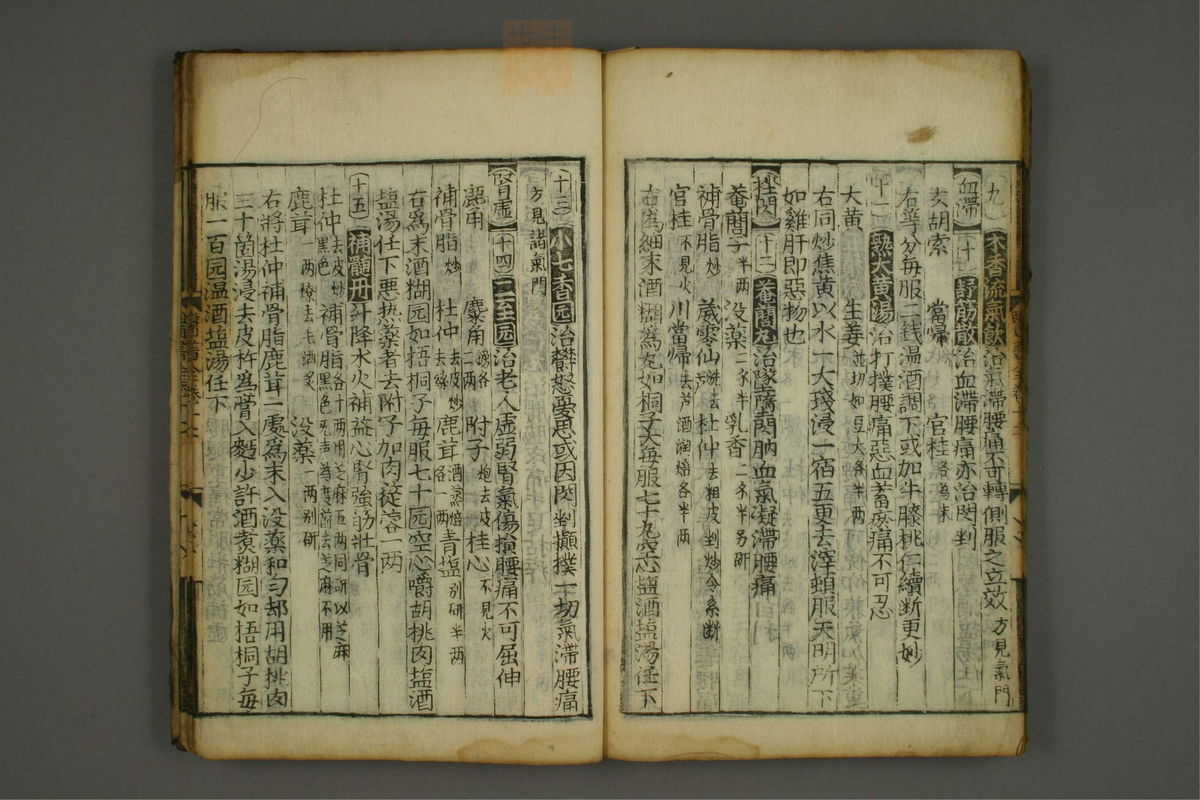 九 木香流氣飲 治氣滯腰痛不可轉側服之立效 方見氣門
血滯 十 舒筋散 治血滯腰痛亦治閃剉
玄胡索 當歸 官桂 各為末
右等分每服二錢温酒調下或加牛膝桃仁續斷更妙
十一 熟大黄湯 治打撲腰痛惡血蓄瘀痛不可忍
大黄 生姜 並切如豆大各半兩
右同炒焦黄以水一大琖浸一宿五更去滓頓服天明所下
如雞肝即惡物也
挫閃 十二 菴䕡丸 治墜墮閃肭血氣凝滯腰痛
菴䕡子 半兩 没薬 二錢半 乳香 二錢半另研
補骨脂 炒 威零仙 洗去 杜仲 去粗皮剉炒令系断
官桂 不見火 川當歸 去芦酒润焙各半兩
右為細末酒糊為丸如桐子大每服七十丸空心塩酒塩湯任下
十三 小七香园 治欝怒憂思或因閃剉顚撲一切氣滯腰痛
方見諸氣門
腎虚 十四 二至园 治老人虚弱腎氣傷損腰痛不可屈伸
鹿角 麋角 鎊各二兩 附子 炮去皮 桂心 不見火
補骨脂 炒 杜仲 去皮炒去絲 鹿茸 酒蒸焙各一兩 青塩 别研半兩
右為末酒糊园如梧桐子每服七十园空心嚼胡桃肉塩酒
塩湯任下惡熱薬者去附子加肉蓯容一兩
十五 補髓丹 升降水火補益心腎強筋壯骨
杜仲 去皮炒黑色 補骨脂 各十兩用芝麻五兩同研以芝麻黑色无声為度篩去芝麻不用
鹿茸 一兩燎去毛酒炙 没薬 一兩别研
右將杜仲補骨脂鹿茸一處為末入没薬和匀却用胡桃肉
三十箇湯浸去皮杵為膏入麪少許酒煑糊园如梧桐子每
服一百园温酒塩湯任下